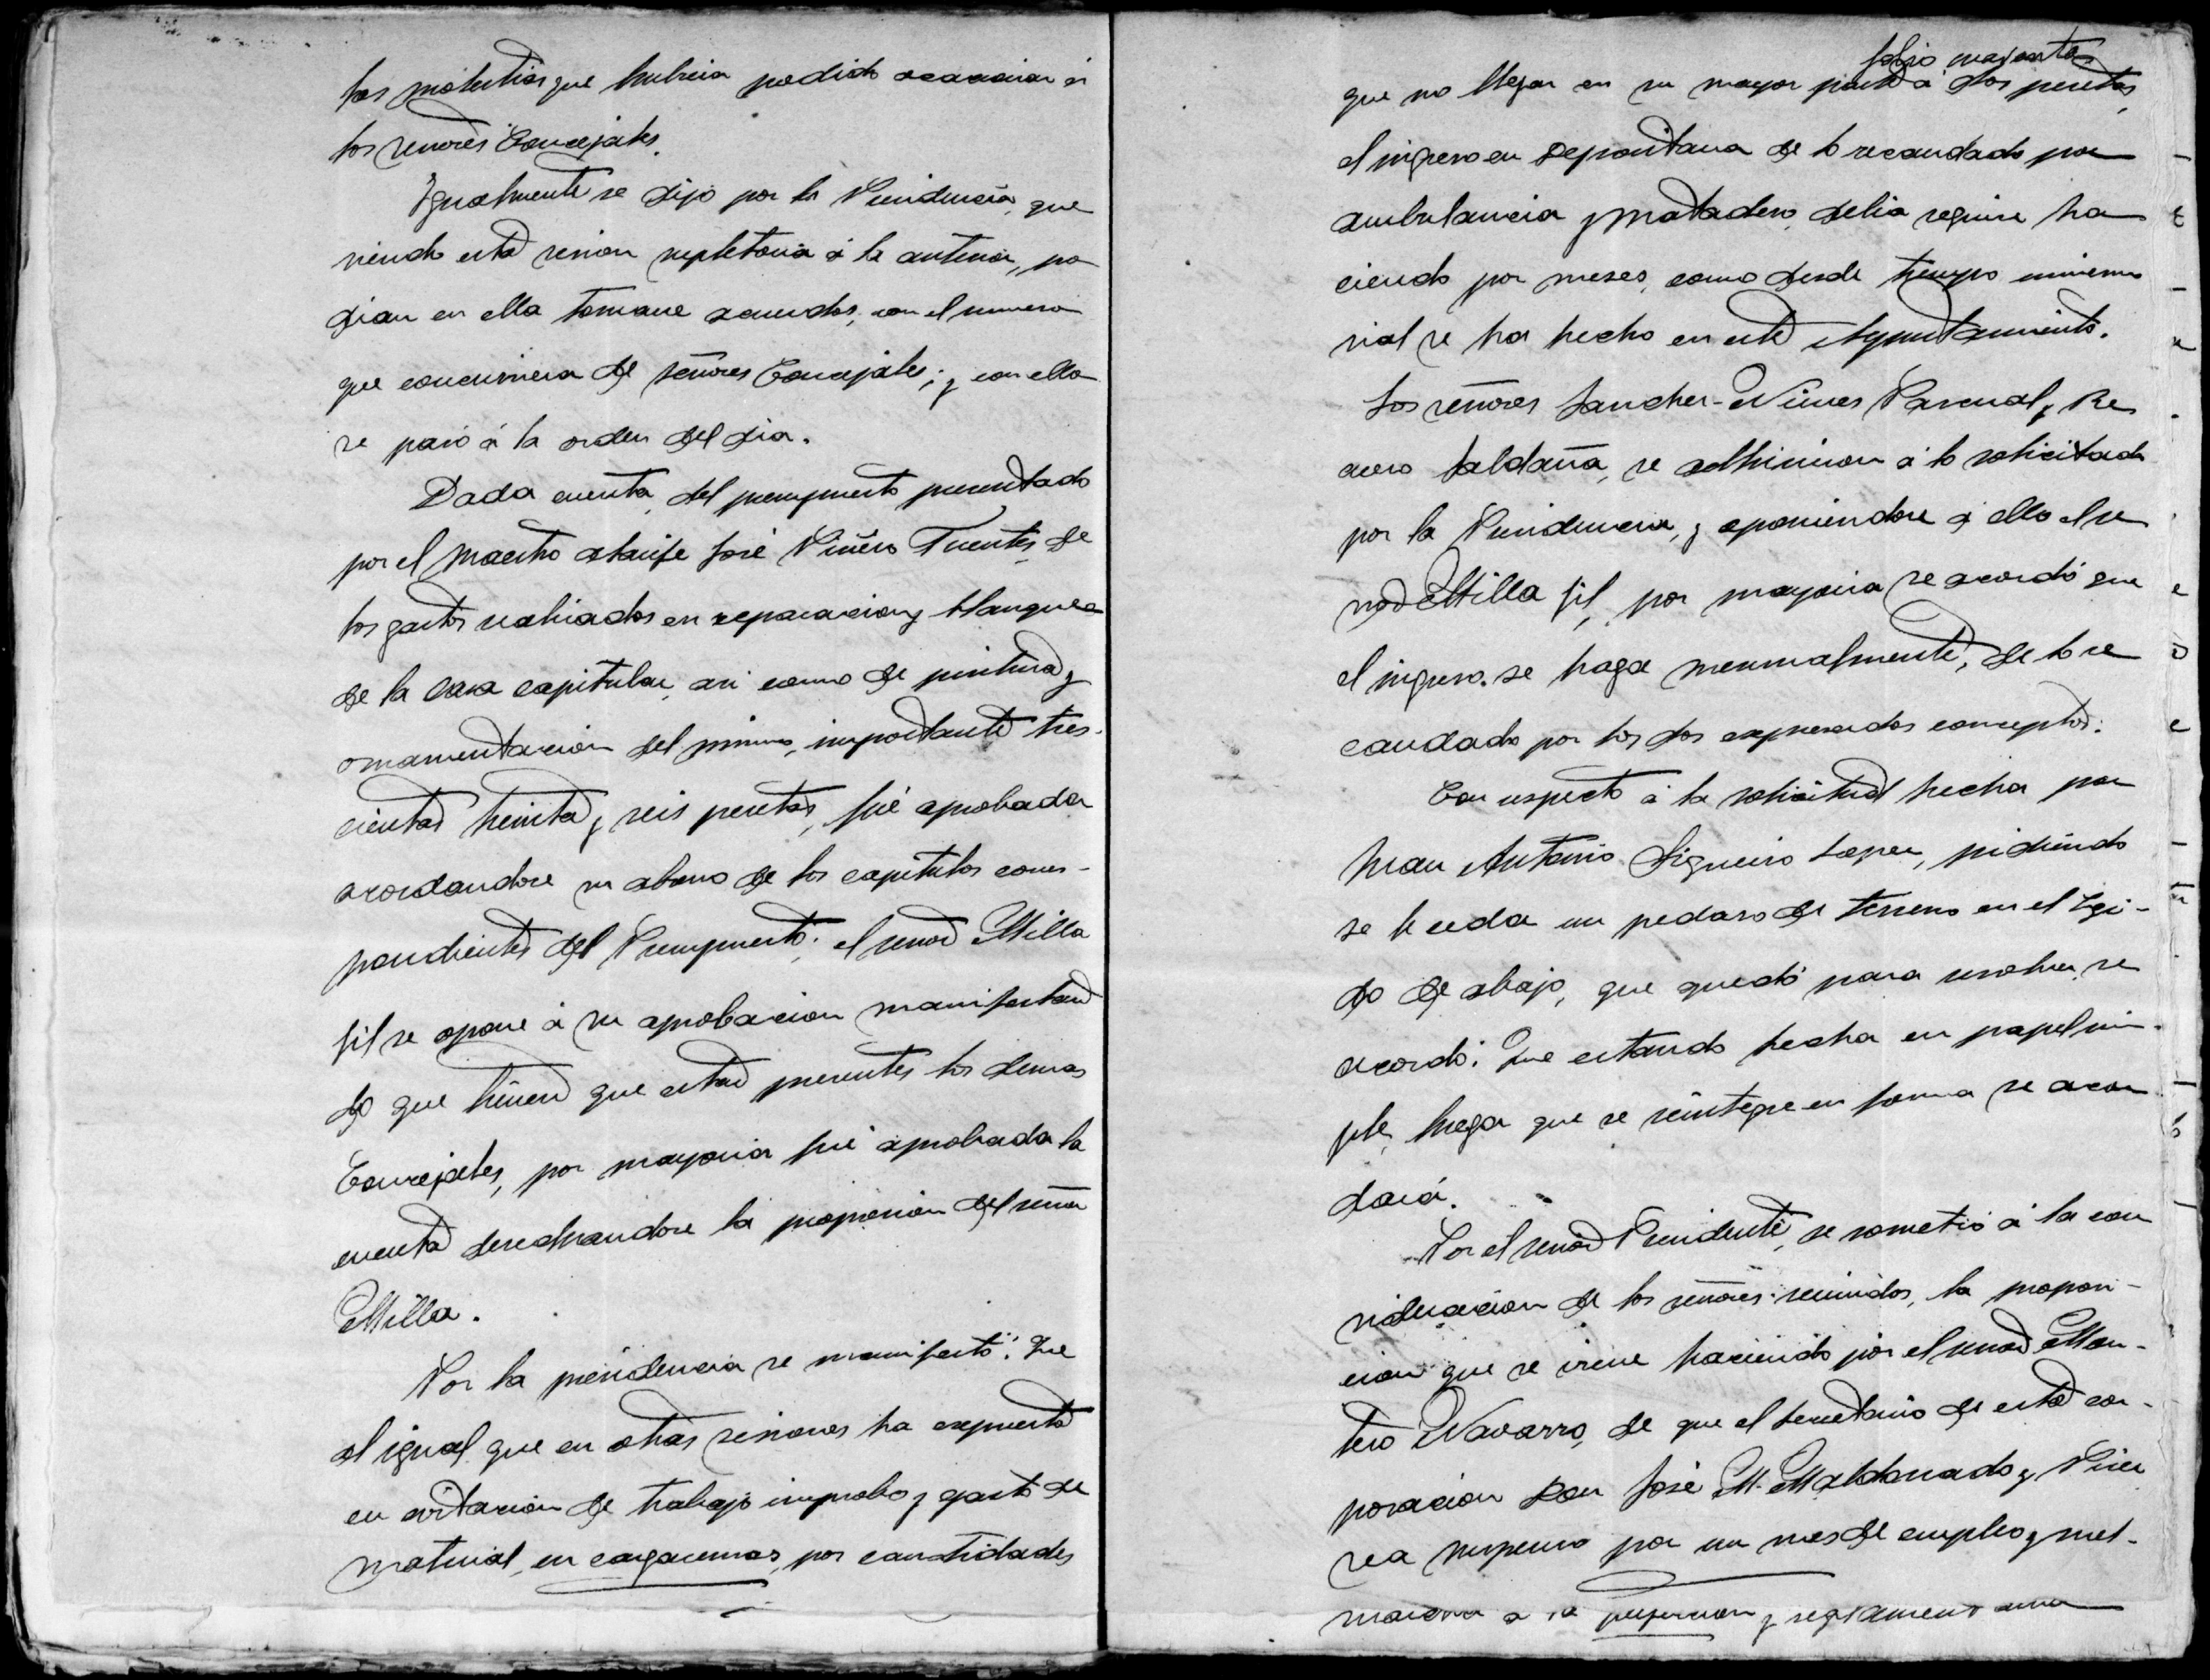 las molestias que hubiera podido ocasionar á
los señores Concejales.
Igualmente se dijo por la Presidencia, que
siendo esta sesion supletoria á la anterior, po
dian en ella tomarse acuerdos, con el numero
que concurriera de señores Concejales; y con ello
se pasó á la orden del dia.
Dada cuenta del presupuesto presentado
por el maestro alarife José Piñero Fuentes, de
los gastos realizados en reparacion y blanqueo
de la casa capitular, asi como de pintura y
ornamentacion del mismo, importante tres-
cientas treinta y seis pesetas, fué aprobada
acordandose su abono de los capitulos corres-
pondientes del Presupuesto; el señor Milla
Gil se opone á su aprobacion manifestan
do que tienen que estar presentes los demas
Concejales, por mayoria fué aprobada la
cuenta desechandose la proposicion del señor
Milla.
Por la presidencia se manifestó: Que
al igual que en otras sesiones ha expuesto
en evitacion de trabajo improbo y gasto de
material, en cargaremes, por cantidades
folio
que no llegan en su mayor parte á dos pesetas,
el ingreso en Depositaria de lo recaudado por
ambulancia y matadero, debia seguirse ha
ciendo por meses, como desde tiempo inmemo
rial se ha hecho en este Ayuntamiento.
Los señores Sanchez-Nieves Pascual, y Re
acero Saldaña, se adhirieron á lo solicitado
por la Presidencia, y oponiendose á ello el se
ñor Milla Gil, por mayoria se acordó que
el ingreso se haga mensualmente, de lo re
caudado por los dos expresados conceptos.
Con respecto á la solicitud hecha por
Juan Antonio Sigueiro Lopez, pidiendo
se le ceda un pedazo de terreno en el Egi-
do de abajo, que quedó para resolver, se
acordó: Que estando hecha en papel sim-
ple, luego que se reintegre en forma se acor
dará.
Por el señor Presidente, se sometió á la con
sideracion de los señores reunidos, la proposi-
cion que se viene haciendo por el señor Mon-
tero Navarro, de que el Secretario de esta cor-
poracion Don José M. Maldonado y Perez
sea suspenso por un mes de empleo y suel-